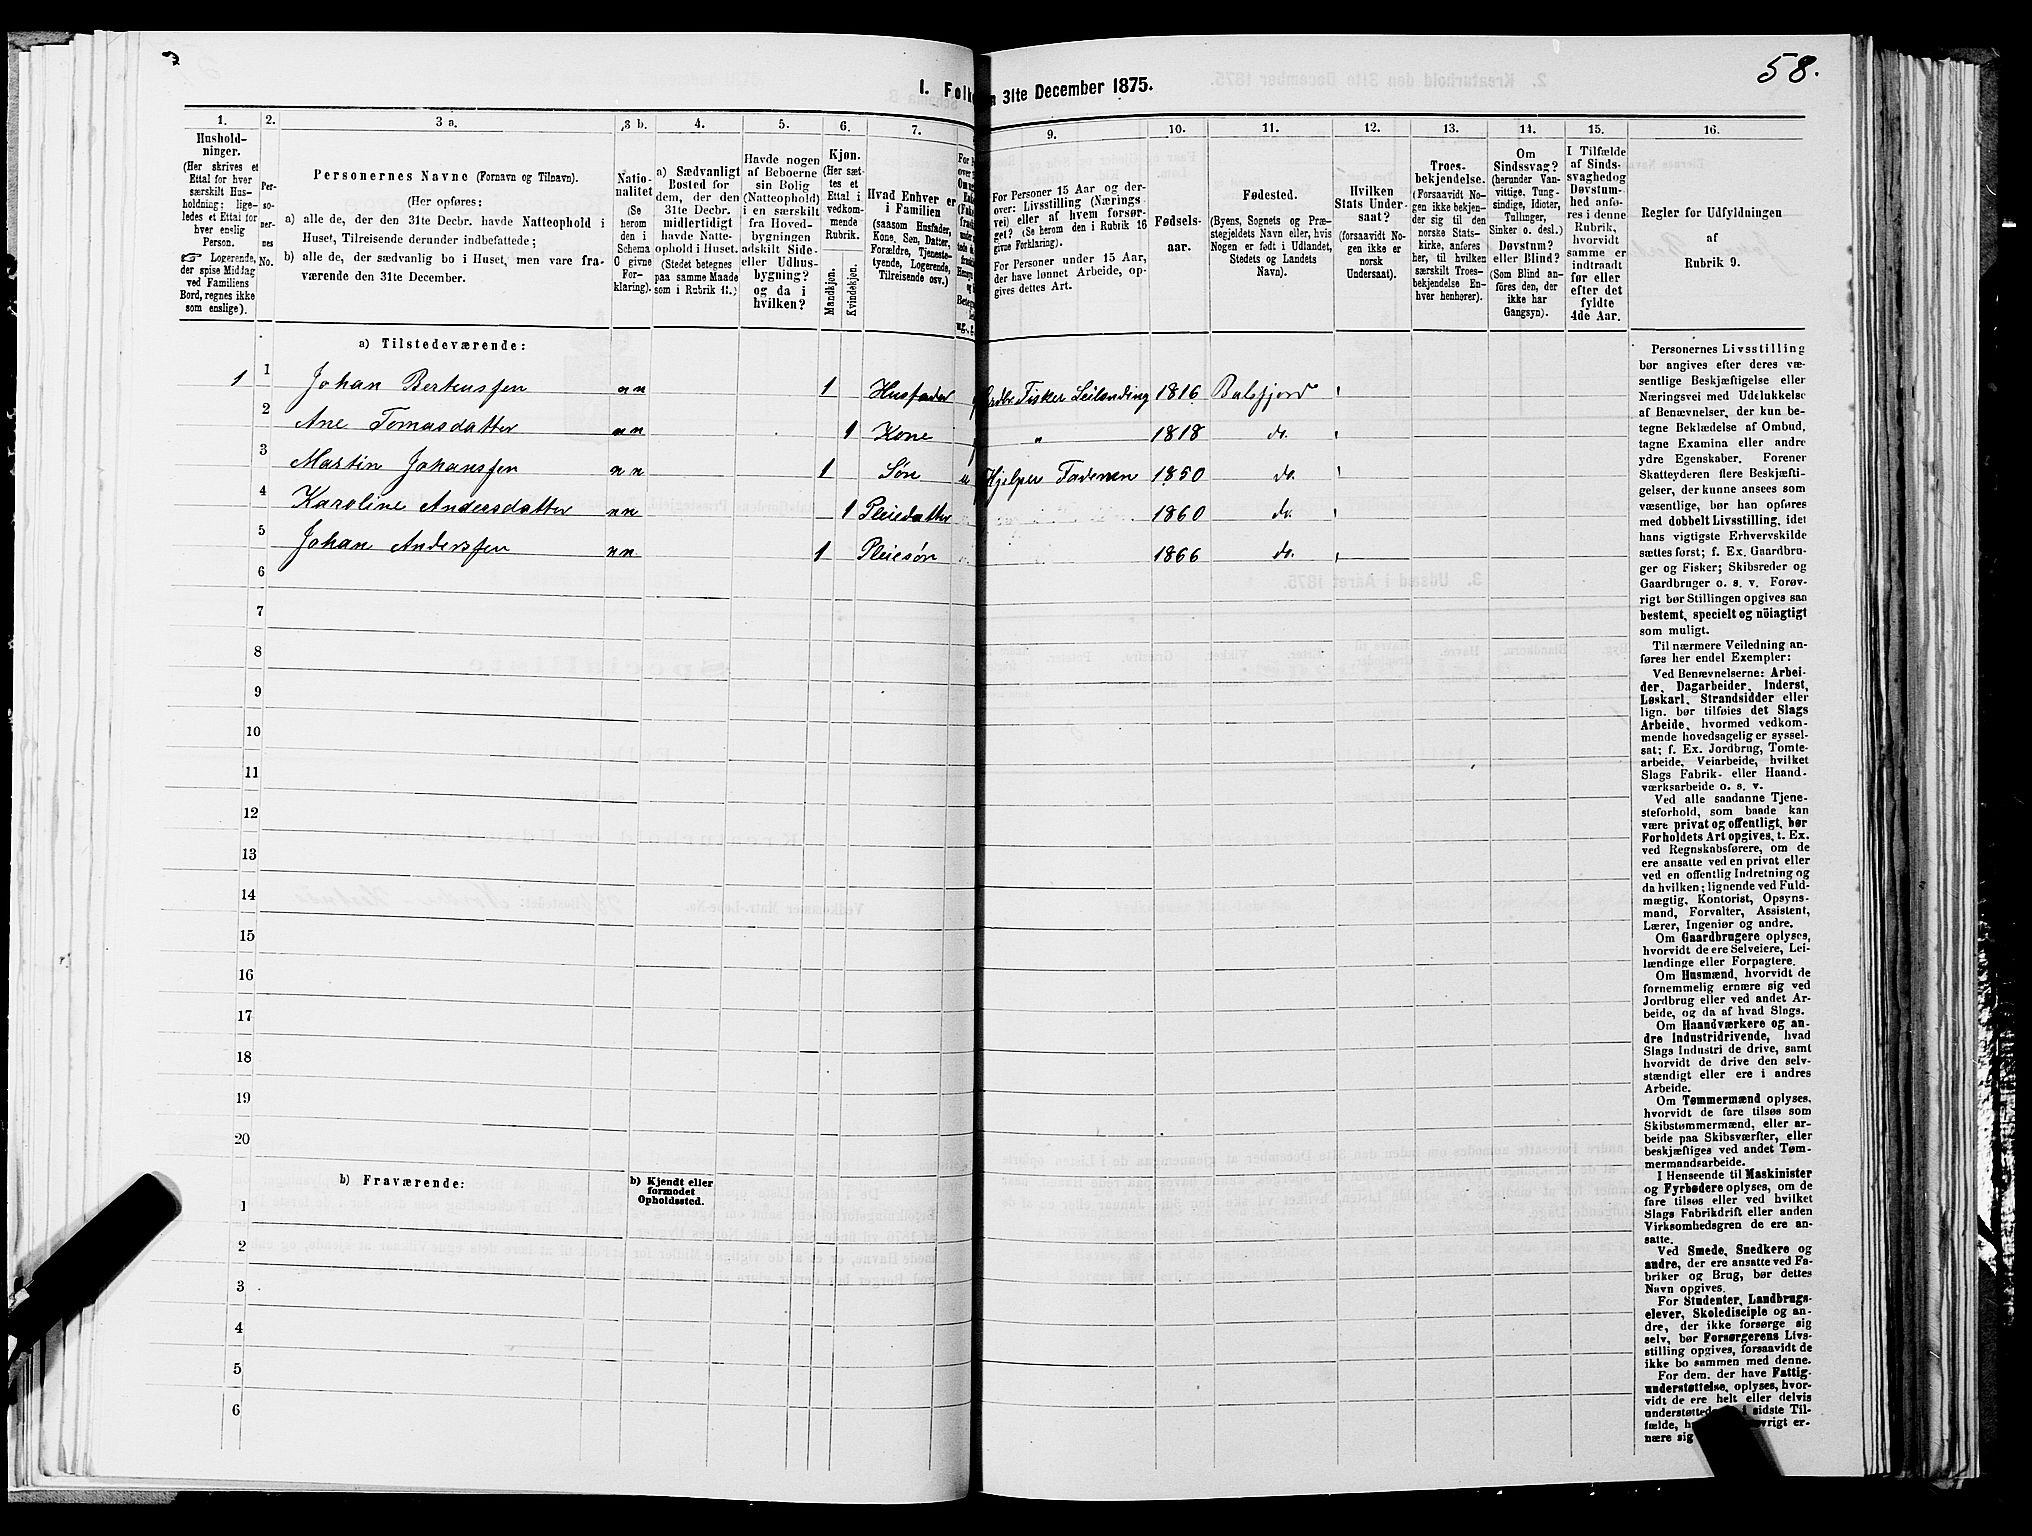 58.
1. Folke
n 31te December 1875.
1.
2.
3 a.
3 b.
4.
5.
6.
7.
9.
10.
11.
12.
13.
14.
15.
16.
Hushold-
ninger.
(Her skrives et
Ettal for hver
særskilt Hus-
holdning; lige-
ledes et Ettal for
hver enslig
Person.
☞ Logerende,
der spise Middag
ved Familiens
Bord, regnes ikke
som enslige).
Per-
so-
ner-
nes
No.
Personernes Navne (Fornavn og Tilnavn).
(Her opføres:
a) alle de, der den 31te Decbr. havde Natteophold i
Huset, Tilreisende derunder indbefattede;
b) alle de, der sædvanlig bo i Huset, men vare fra-
værende den 31te December.
Natio-
nalitet
(Se
herom
den i
Schema
C givne
For-
klaring).
a) Sædvanligt
Bosted for
dem, der den
31te Decbr.
midlertidigt
havde Natte-
ophold i Huset.
(Stedet betegnes
paa samme Maade
som i Rubrik 11.)
Havde nogen
af Beboerne
sin Bolig
(Natteophold)
i en særskilt
fra Hoved-
bygningen
adskilt Side-
eller Udhus-
bygning?
og da i
hvilken?
Kjøn.
(Her sæt-
tes et
Ettal i
vedkom-
mende
Rubrik.
Mandkjøn.
Kvindekjøn.
Hvad Enhver er
i Familien
(saasom Husfader,
Kone, Søn, Datter,
Forældre, Tjeneste-
tyende, Logerende,
Tilreisende osv.)
For Personer 15 Aar og der-
over: Livsstilling (Nærings-
vei) eller af hvem forsør-
get? (Se herom den i Rubrik 16
givne Forklaring).
For Personer under 15 Aar,
der have lønnet Arbeide, op-
gives dettes Art.
Fødsels-
aar.
Fødested.
(Byens, Sognets og Præ-
stegjeldets Navn eller, hvis
Nogen er født i Udlandet,
Stedets og Landets
Navn).
Hvilken
Stats Under-
saat?
(forsaavidt No-
gen ikke er
norsk
Undersaat).
Troes-
bekjendelse.
(Forsaavidt No-
gen ikke bekjen-
der sig til den
norske Stats-
kirke, anføres
her, til hvilken
særskilt Troes-
bekjendelse En-
hver henhører).
Om
Sindssvag?
(herunder Van-
vittige, Tung-
sindige, Idioter,
Tullinger,
Sinker o. desl.)
Døvstum?
eller Blind?
(Som Blind an-
føres den, der
ikke har
Gangsyn).
I Tilfælde
af Sinds-
svaghed og
Døvstum-
hed anfø-
res i denne
Rubrik,
hvorvidt
samme er
indtraadt
før eller
efter det
fyldte
4de Aar.
Regler for Udfyldningen
af
Rubrik 9.
a) Tilstedeværende:
1 1 Johan Berteussen nn 1 Husfader Fisker Leilænding 1816 Balsfjord
2 Ane Tomasdatter nn 1 Kone " 1818 do.
3 Martin Johanssen nn 1 Søn Hjelper Faderen 1850 do.
4 Karoline Andersdatter nn 1 Pleiedatter 1860 do.
5 Johan Anderssen nn 1 Pleiesøn 1866 do.
6
7
8
9
10
11
12
13
14
15
16
17
18
19
20
b) Fraværende:
b) Kjendt eller
formodet
Opholdssted.
1
2
3
4
5
6
Personernes Livsstilling
bør angives efter deres væ-
sentlige Beskjæftigelse eller
Næringsvei med Udelukkelse
af Benævnelser, der kun be-
tegne Beklædelse af Ombud,
tagne Examina eller andre
ydre Egenskaber. Forener
Skatteyderen flere Beskjæfti-
gelser, der kunne ansees som
væsentlige, bør han opføres
med dobbelt Livsstilling, idet
hans vigtigste Erhvervskilde
sættes først; f. Ex. Gaardbru-
ger og Fisker; Skibsreder og
Gaardbruger o. s. v. Forøv-
rigt bør Stillingen opgives saa
bestemt, specielt og nöiagtigt
som muligt.
Til nærmere Veiledning an-
føres her endel Exempler:
Ved Benævnelserne: Arbei-
der, Dagarbeider, Inderst,
Løskarl, Strandsidder eller
lign. bør tilføies det Slags
Arbeide, hvormed vedkom-
mende hovedsagelig er syssel-
sat; f. Ex. Jordbrug, Tomte-
arbeide, Veiarbeide, hvilket
Slags Fabrik- eller Haand-
værksarbeide o. s. v.
Ved alle saadanne Tjene-
steforhold, som baade kan
være privat og offentligt, bør
Forholdets Art opgives, t. Ex.
ved Regnskabsførere, om de
ere ansatte ved en privat eller
ved en offentlig Indretning og
da hvilken; lignende ved Fuld-
mægtig, Kontorist, Opsyns-
mand, Forvalter, Assistent,
Lærer, Ingeniør og andre.
Om Gaardbrugere oplyses,
hvorvidt de ere Selveiere, Lei-
lændinge eller Forpagtere.
Om Husmænd, hvorvidt de
fornemmelig ernære sig ved
Jordbrug eller ved andet Ar-
beide, og da af hvad Slags.
Om Haandværkere og an-
dre Industridrivende, hvad
Slags Industri de drive, samt
hvorvidt de drive den selv-
stændigt eller ere i andres
Arbeide.
Om Tømmermænd oplyses,
hvorvidt de fare tilsøs som
Skibstømmermænd, eller ar-
beide paa Skibsværfter, eller
beskjæftiges ved andet Tøm-
mermandsarbeide.
I Henseende til Maskinister
og Fyrbødere oplyses, om de
fare tilsøs eller ved hvilket
Slags Fabrikdrift eller anden
Virksomhedsgren de ere an-
satte.
Ved Smede, Snedkere og
andre, der ere ansatte ved Fa-
briker og Brug, bør dettes
Navn opgives.
For Studenter, Landbrugs-
elever, Skoledisciple og an-
dre, der ikke forsørge sig
selv, bør Forsørgerens Livs-
stilling opgives, forsaavidt de
ikke bo sammen med denne.
For dem, der have Fattig-
understøttelse, oplyses, hvor-
vidt de ere helt eller delvis
understøttede i sidste Til-
fælde,
nære sig